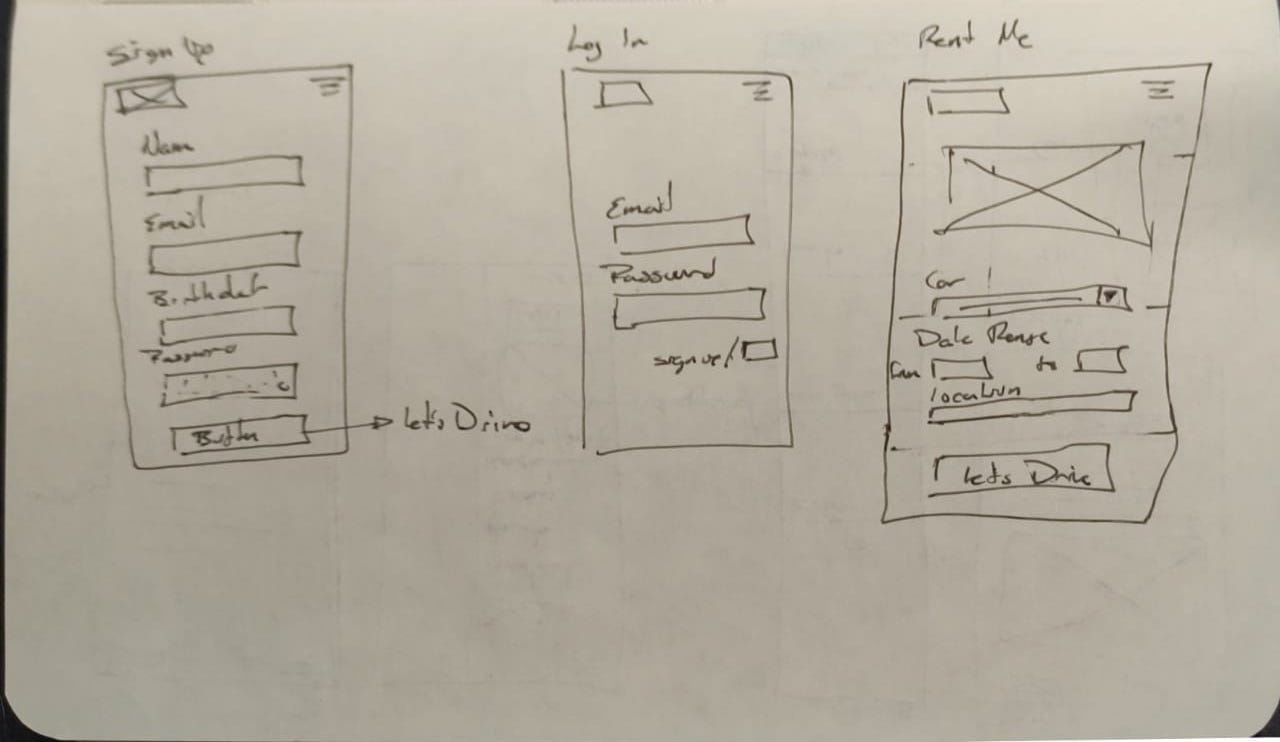 Sign Up
Name
Email
Birthdate
Password
Button
Let's Drive
Log In
Email
Password
sign up/
Rent Me
Car
Date Range
from
to
location
Let's Drive